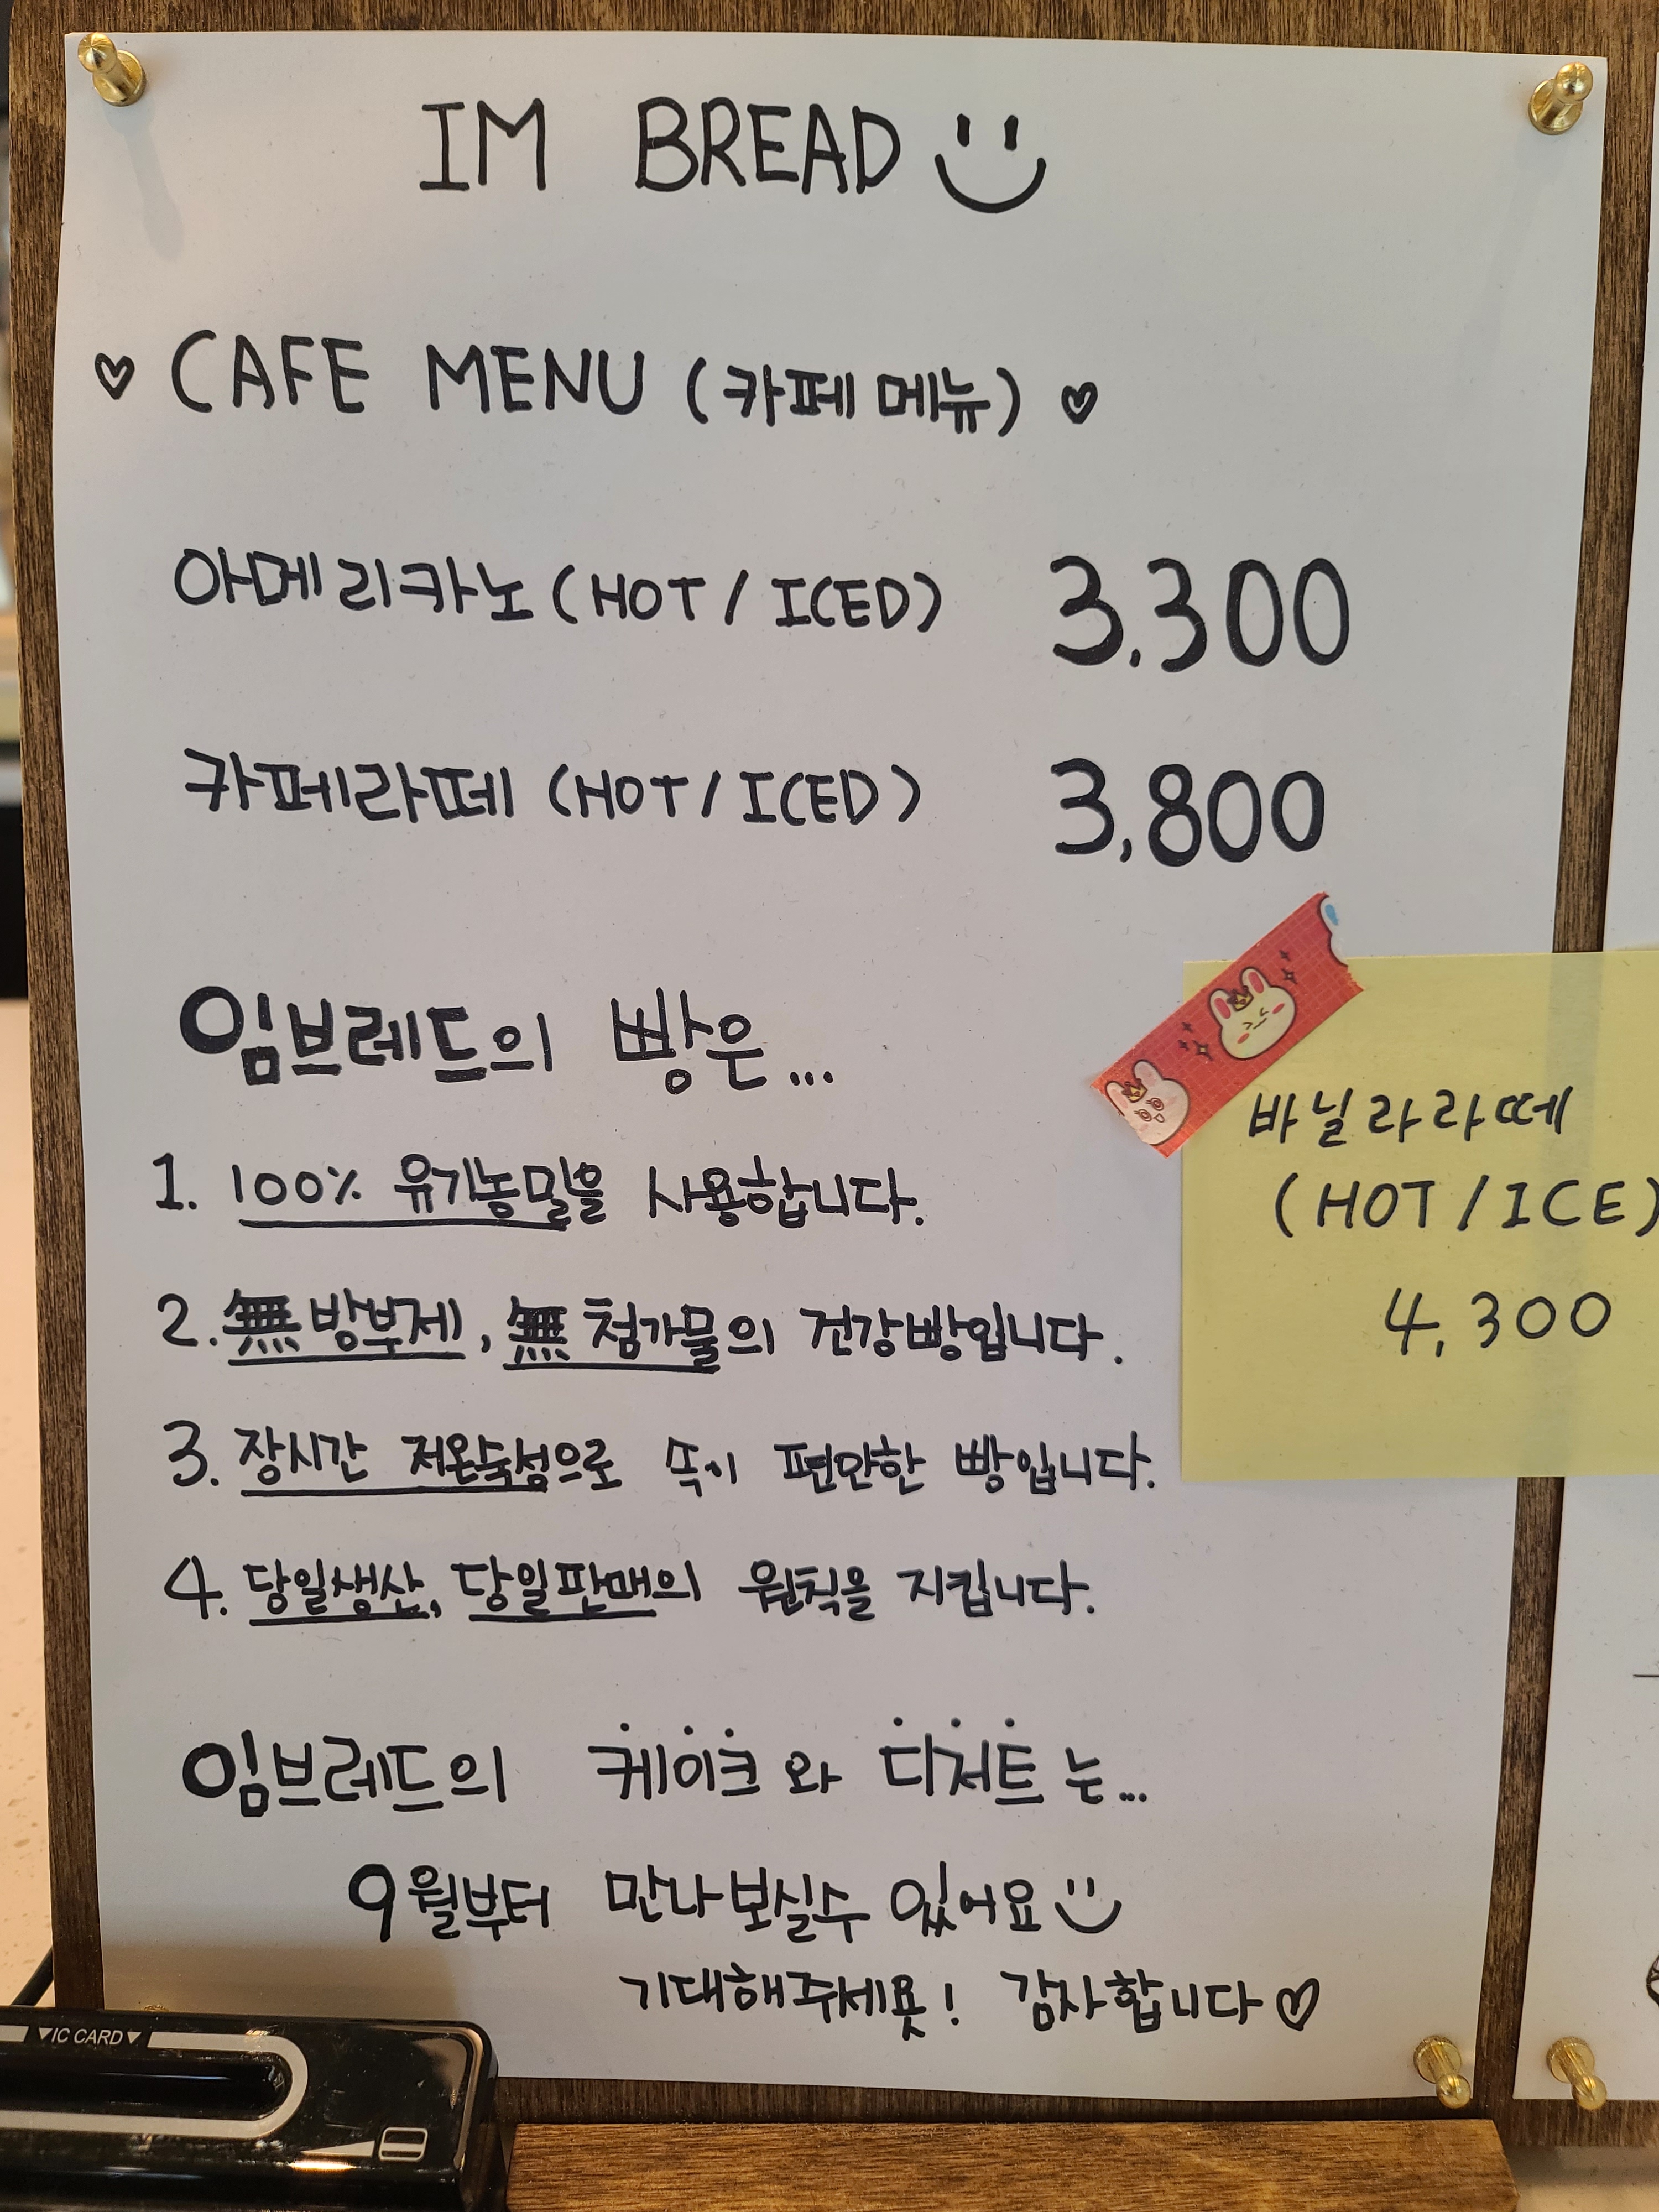 IM BREAD
♡ CAFE MENU (카페 메뉴) ♡
아메리카노 (HOT / ICED) 3.300
카페라떼 (HOT / ICED) 3,800
임브레드의 빵은...
1. 100% 유기농밀을 사용합니다.
2. 無방부제, 無첨가물의 건강빵입니다.
3. 장시간 저온숙성으로 속이 편안한 빵입니다.
4. 당일생산, 당일판매의 원칙을 지킵니다.
바닐라라떼
(HOT / ICE)
4,300
임브레드의 케이크와 디저트는...
9월부터 만나보실수 있어요
기대해주세욧! 감사합니다♡
▼IC CARD▼